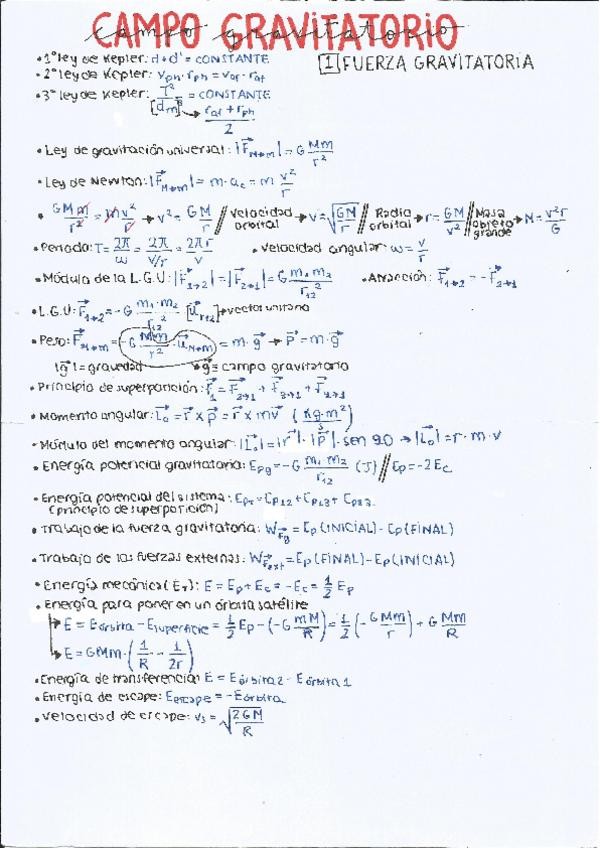 CAMPO GRAVITATORIO
campo gravitatorio
1 FUERZA GRAVITATORIA
• 1ª ley de Kepler: d + d' = CONSTANTE
• 2ª ley de Kepler: Vph · rph = Vaf · raf
• 3ª ley de Kepler: T²/[dm]³ = CONSTANTE
→ (raf + rph)/2
• Ley de gravitación universal: |F⃗M→m| = G Mm/r²
• Ley de Newton: |F⃗M→m| = m · ac = m v²/r
• GMm/r² = m v²/r → v² = G M/r // Velocidad orbital → V = √(GM/r) // Radio orbital → r = G M/v² // Masa objeto grande → M = v²r/G
• Periodo: T = 2π/ω = 2π/(v/r) = 2πr/v • Velocidad angular: ω = v/r
• Módulo de la L.G.U: |F⃗1→2| = |F⃗2→1| = G m1 m2/r12² • Atracción: F⃗1→2 = -F⃗2→1
• L.G.U: F⃗1→2 = -G m1 · m2/r12² [u⃗r12] → vector unitario
• Peso: F⃗M→m = -G Mm/r² · u⃗M→m = m · g⃗ → P⃗ = m · g⃗
|g⃗| = gravedad g⃗ = campo gravitatorio
• Principio de superposición: F⃗1 = F⃗2→1 + F⃗3→1 + F⃗4→1
• Momento angular: L⃗o = r⃗ x p⃗ = r⃗ x mv⃗ (kg·m²/s)
• Módulo del momento angular: |L⃗o| = |r⃗| · |p⃗| · sen 90 → |L⃗o| = r · m · v
• Energía potencial gravitatoria: Epg = -G m1 · m2/r12 (J) // Ep = -2Ec
• Energía potencial del sistema: EpT = Ep12 + Ep13 + Ep23
(principio de superposición)
• Trabajo de la fuerza gravitatoria: WF⃗g = Ep (INICIAL) - Ep (FINAL)
• Trabajo de las fuerzas externas: WF⃗ext = Ep (FINAL) - Ep (INICIAL)
• Energía mecánica (ET): E = Ep + Ec = -Ec = 1/2 Ep
• Energía para poner en un órbita satélite
→ E = Eórbita - Esuperficie = 1/2 Ep - (-G mM/R) = 1/2 (-GMm/r) + G Mm/R
→ E = GMm · (1/R - 1/2r)
• Energía de transferencia: E = Eórbita2 - Eórbita1
• Energía de escape: Eescape = -Eórbita
• Velocidad de escape: vs = √(2GM/R)